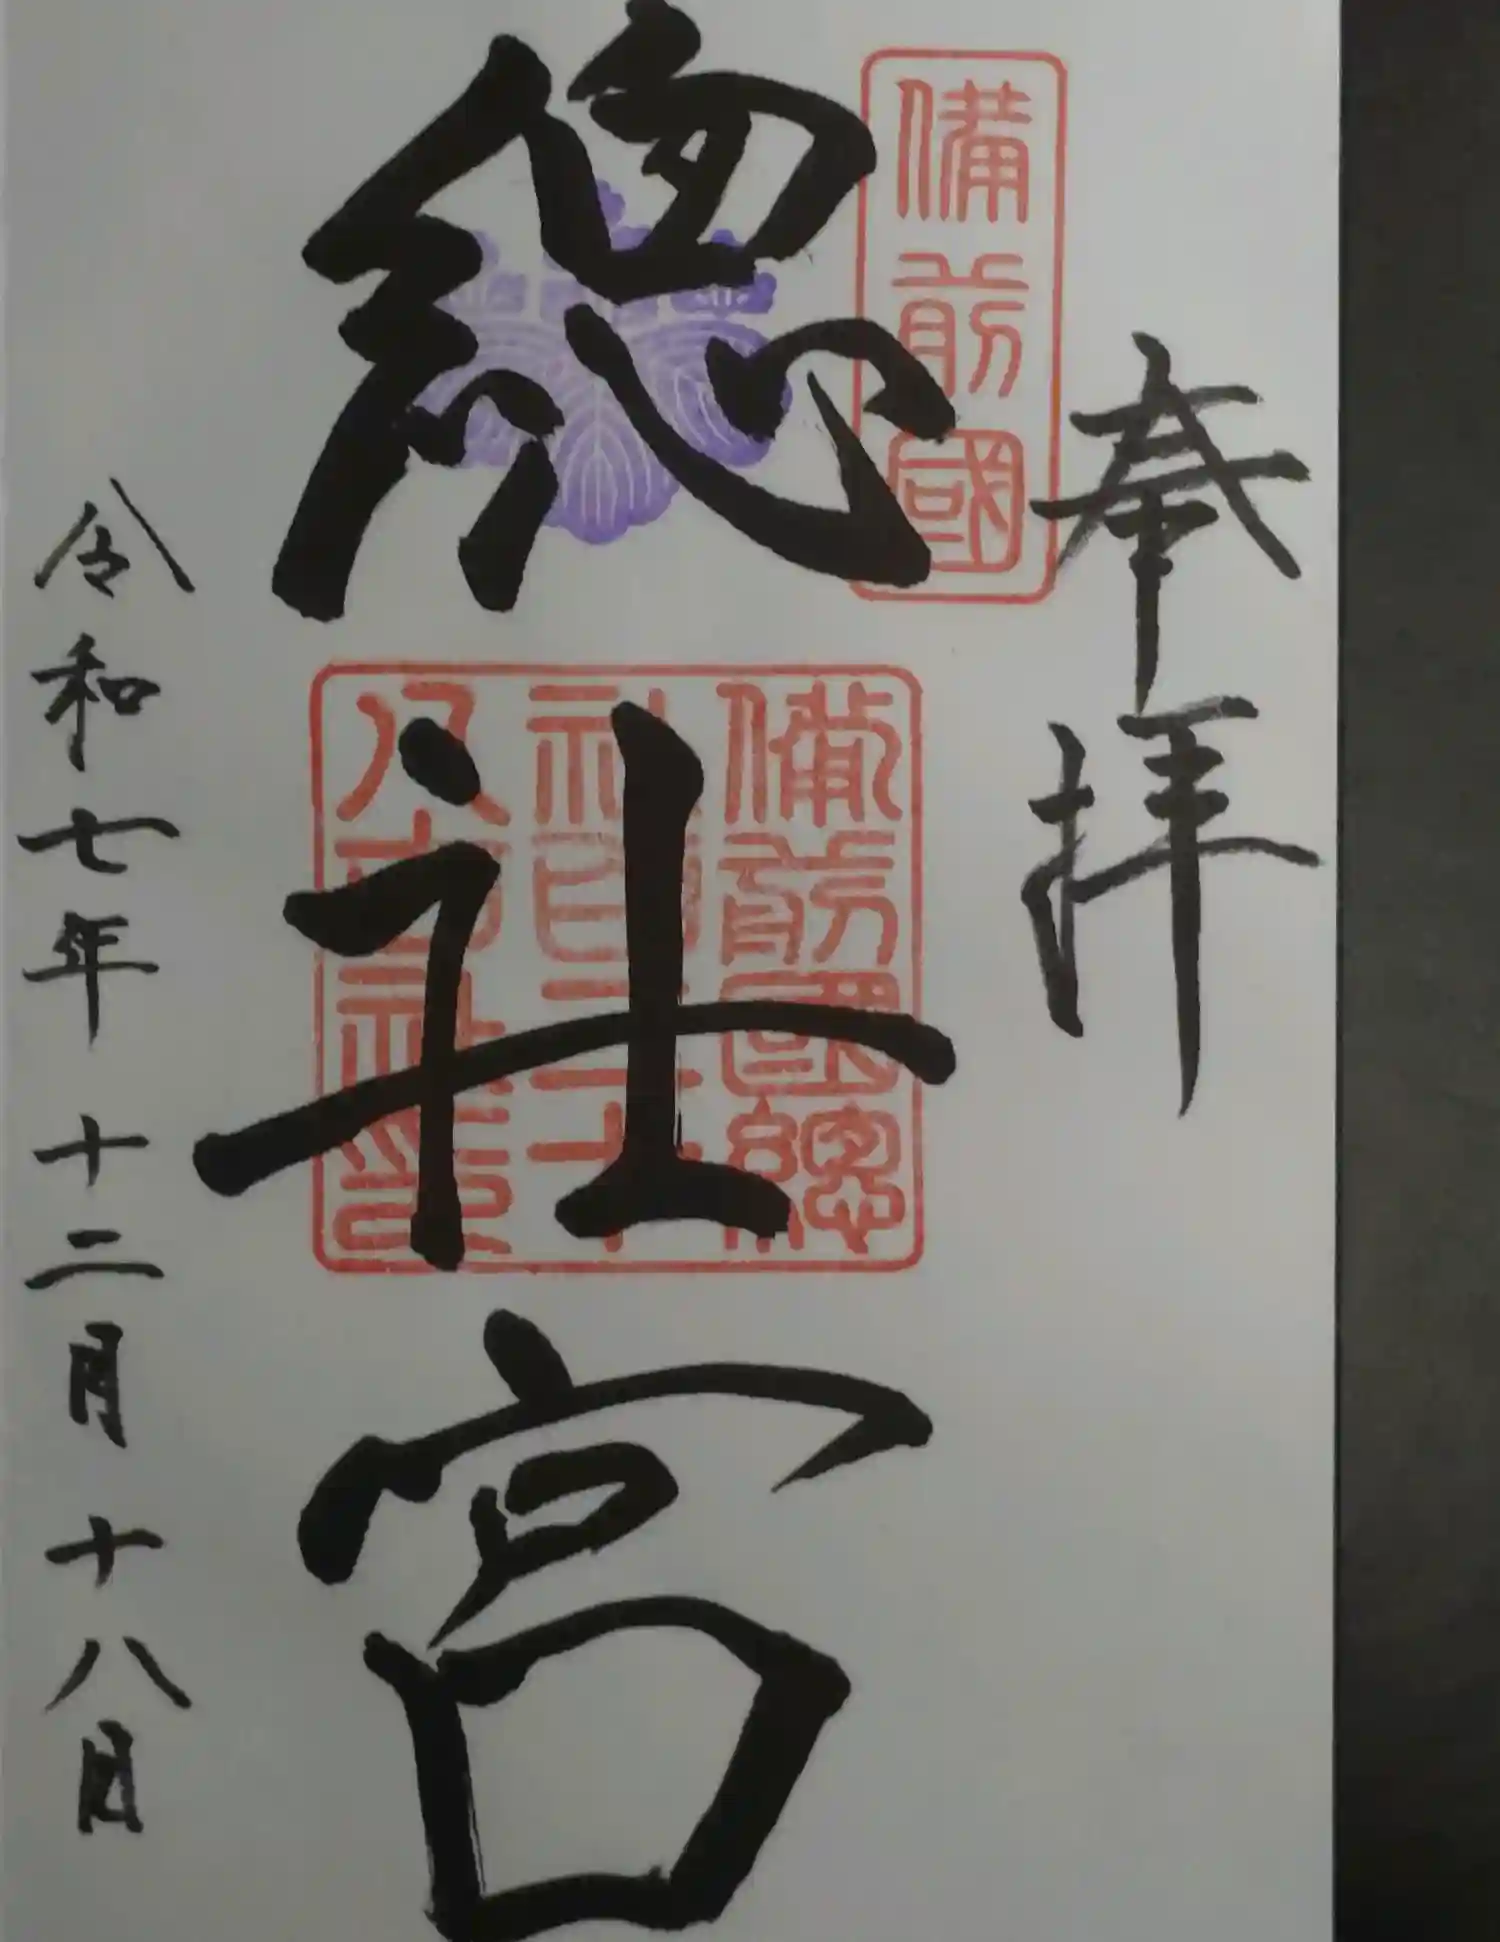 奉拝
備前國
總社宮
備前國總
社百二十
八古社印
令和七年十二月十八日